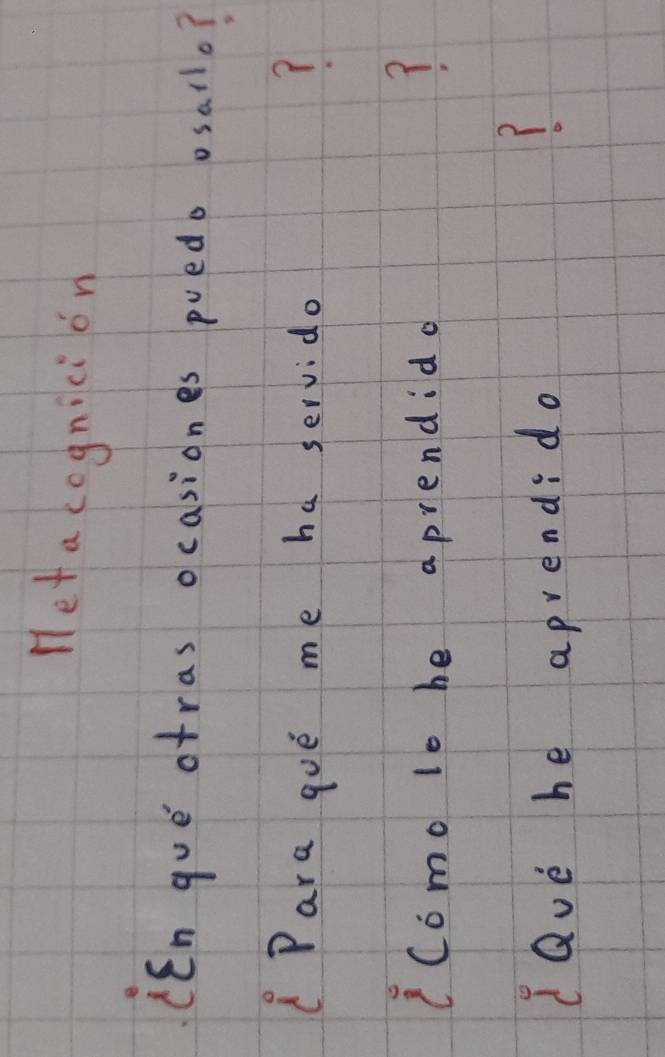 Metacognición
¿En qué otras ocasiones puedo osarlo?
¿Para qué me ha servido?
¿Cómo lo he aprendido?
¿Qué he aprendido?